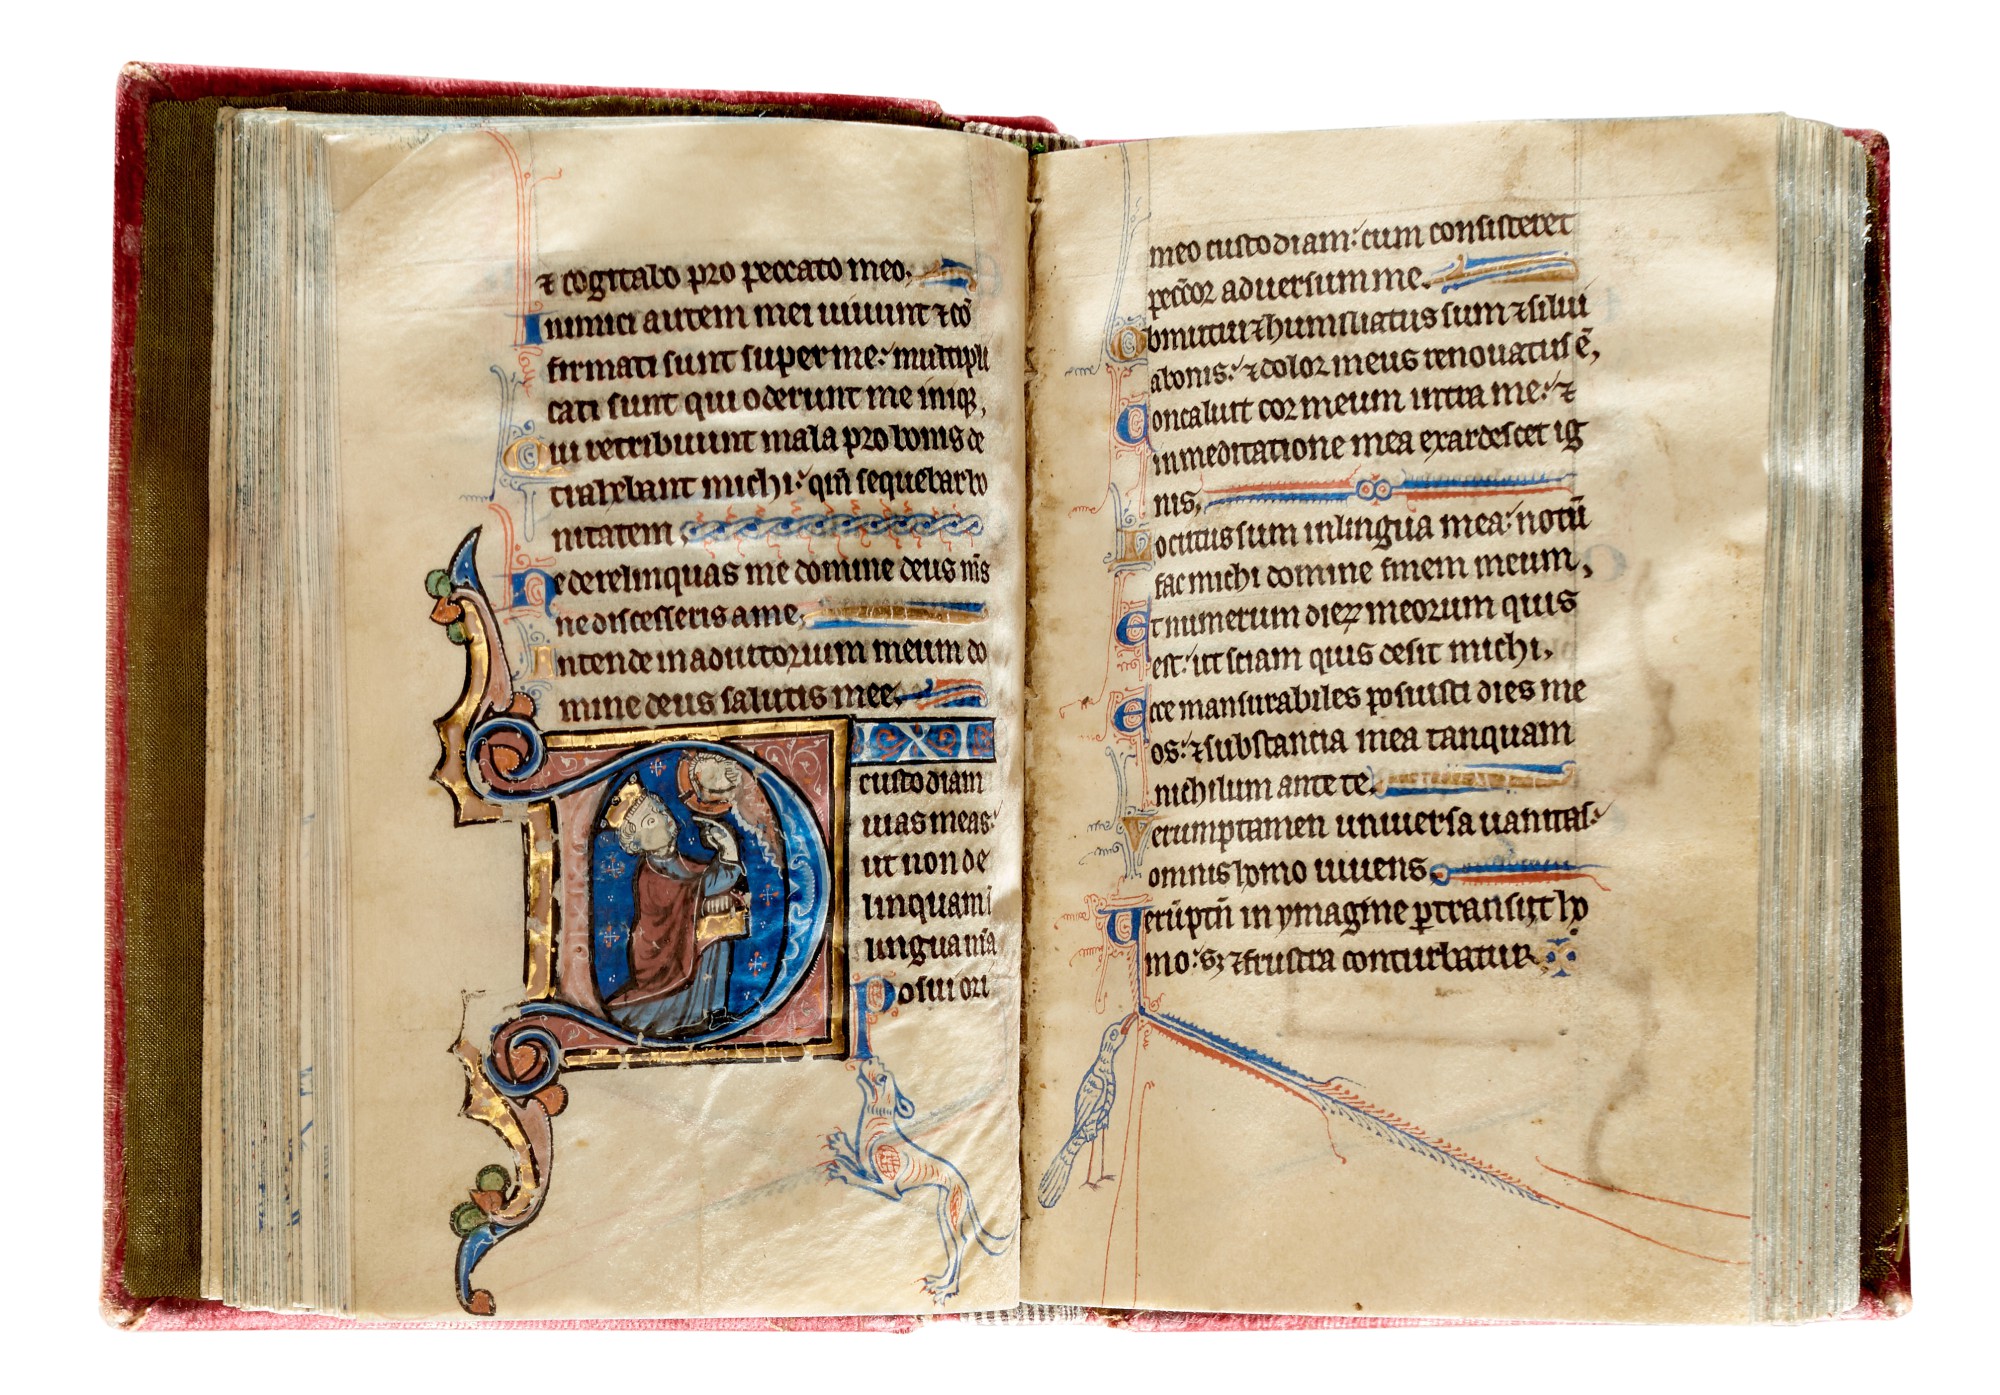 ⁊ cogitabo pro peccato meo.
Inimici autem mei uiuunt ⁊ cō
firmati sunt super me: multipli
cati sunt qui oderunt me iniq̄,
Qui retribuunt mala pro bonis de
trahebant michi: qm̄ sequebar bo
nitatem
Ne derelinquas me domine deus m̄s
ne discesseris a me,
Intende in adiutorium meum do
mine deus salutis mee,
D
custodiam
uias meas:
ut non de
linquam ī
lingua m̄a
Posui ori
meo custodiam: cum consisteret
pecc̄or aduersum me.
Obmutui ⁊ humiliatus sum ⁊ silui
a bonis: ⁊ dolor meus renouatus ē,
Concaluit cor meum intra me: ⁊
in meditatione mea exardescet ig
nis,
Locutus sum in lingua mea: notū
fac michi domine finem meum,
Et numerum dieꝝ meorum quis
est: ut sciam quis desit michi,
Ecce mansurabiles posuisti dies me
os: ⁊ substantia mea tanquam
nichilum ante te,
Verumptamen uniuersa uanitas:
omnis homo uiuens,
Verūptn̄ in ymagine ꝑtransiit ho
mo: sꝫ ⁊ frustra conturbatur